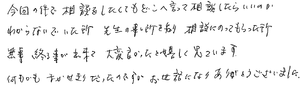 今回の件で 相談をしたくてもどこへ言って相談したらいいのか
わからないでいた所 先生の事を知り 相談にのってもらった所
無事 終る事が出来て 大変良かったと嬉しく思ています
何もかも まかせきりだったのですが お世話になり ありがとうございました